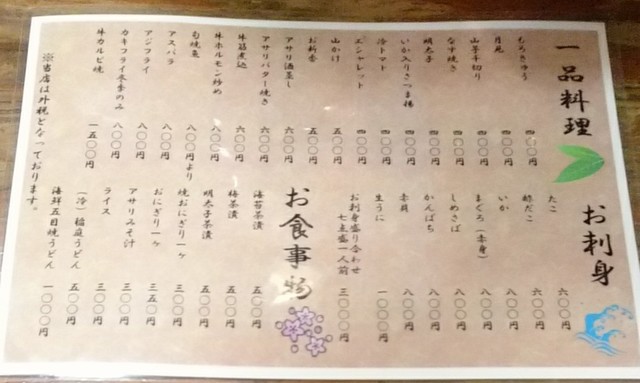 一品料理
もろきゅう 四〇〇円
月見 四〇〇円
山芋千切り 四〇〇円
なす焼き 四〇〇円
明太子 四〇〇円
いか入りさつま揚 四〇〇円
冷トマト 四〇〇円
エシャレット 四〇〇円
山かけ 五〇〇円
お新香 五〇〇円
アサリ酒蒸し 六〇〇円
アサリバター焼き 六〇〇円
牛筋煮込 六〇〇円
牛ホルモン炒め 八〇〇円
旬焼魚 八〇〇円より
アスパラ 八〇〇円
アジフライ 八〇〇円
カキフライ冬季のみ 八〇〇円
牛カルビ焼 一五〇〇円
※当店は外税となっております。
お刺身
たこ 六〇〇円
酢だこ 六〇〇円
いか 八〇〇円
まぐろ(赤身) 八〇〇円
しめさば 八〇〇円
かんぱち 八〇〇円
赤貝 八〇〇円
生うに 一〇〇〇円
お刺身盛り合わせ
七点盛一人前 三〇〇〇円
お食事物
海苔茶漬 五〇〇円
梅茶漬 五〇〇円
明太子茶漬 五〇〇円
焼おにぎり一ヶ 三〇〇円
おにぎり一ヶ 三五〇円
アサリみそ汁 三五〇円
ライス 三〇〇円
(冷)稲庭うどん 五〇〇円
海鮮五目焼うどん 一〇〇〇円